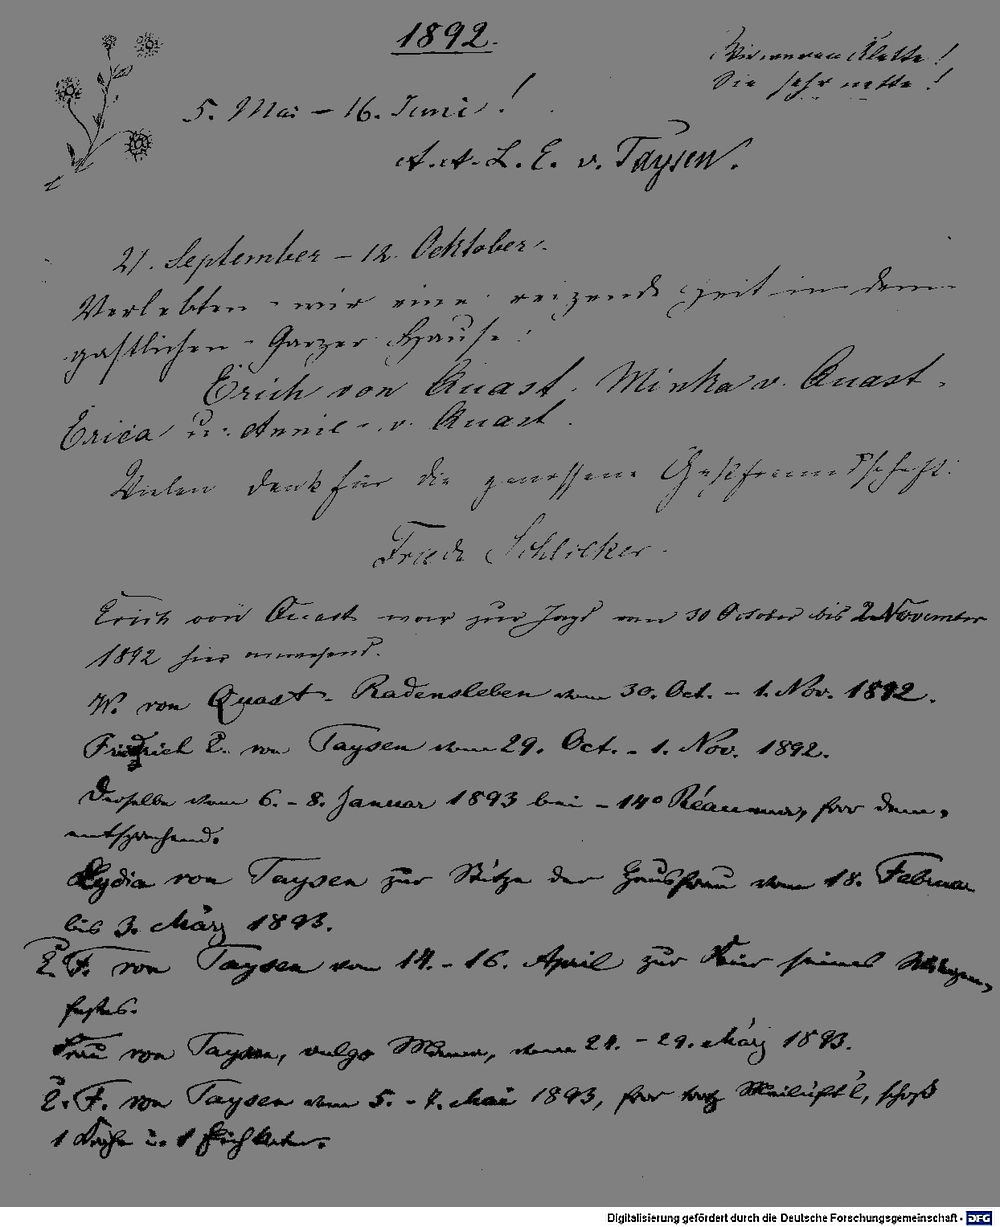 1892.
Wir waren Klette!
Sie sehr nette!
5. Mai – 16. Juni!
A. A. L. E. v. Taysen.
21. September – 12. Ocktober.
Verlebten wir eine reizende Zeit in dem
gastlichen Garzer Hause!
Erich von Quast. Minka v. Quast.
Erica u. Annie v. Quast.
Vielen Dank für die genossene Gastfreundschaft.
Frieda Schlicker.
Erich von Quast war zur Jagd vom 30 October bis 2 November
1892 hier anwesend.
W. von Quast - Radensleben vom 30. Oct. – 1. Nov. 1892.
Friedrich E. von Taysen vom 29. Oct. – 1. Nov. 1892.
Derselbe vom 6. – 8. Januar 1893 bei – 14° Réaumur, fror dem-
entsprechend.
Lydia von Taysen zur Stütze der Hausfrau vom 18. Februar
bis 3. März 1893.
E. F. von Taysen vom 14. – 16. April zur Feier seines
Frau von Taysen, vulgo Mama, vom 24. – 29. März 1893.
E. F. von Taysen vom 5. – 7. Mai 1893, fror trotz Mailüft'l, schoß
1 Krähe u. 1 Eichkater.
Digitalisierung gefördert durch die Deutsche Forschungsgemeinschaft - DFG